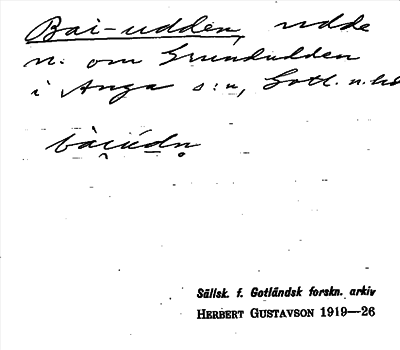 Bai-udden, udde
n. om Grundudden
i Anga s:n, Gotl. n. hd
bàiúdn̥
Sällsk. f. Gotländsk forskn. arkiv
HERBERT GUSTAVSON 1919—26